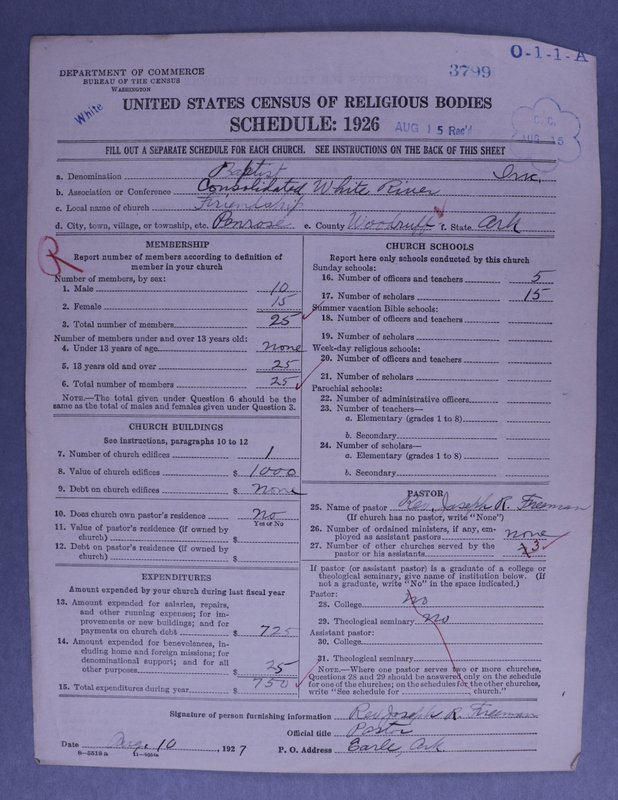 O-1-1-A
3799
DEPARTMENT OF COMMERCE
BUREAU OF THE CENSUS
WASHINGTON
White
UNITED STATES CENSUS OF RELIGIOUS BODIES
SCHEDULE: 1926
AUG 15 Rec'd
FILL OUT A SEPARATE SCHEDULE FOR EACH CHURCH. SEE INSTRUCTIONS ON THE BACK OF THIS SHEET
a. Denomination Baptist
b. Association or Conference Consolidated White River
c. Local name of church Friendship
d. City, town, village, or township, etc. Penrose e. County Woodruff f. State Ark
MEMBERSHIP
Report number of members according to definition of
member in your church
Number of members, by sex:
1. Male 10
2. Female 15
3. Total number of members 25
Number of members under and over 13 years old:
4. Under 13 years of age None
5. 13 years old and over 25
6. Total number of members 25
NOTE.—The total given under Question 6 should be the
same as the total of males and females given under Question 3.
CHURCH BUILDINGS
See instructions, paragraphs 10 to 12
7. Number of church edifices 1
8. Value of church edifices $ 1000
9. Debt on church edifices $ None
10. Does church own pastor's residence? No
Yes or No
11. Value of pastor's residence (if owned by
church) $
12. Debt on pastor's residence (if owned by
church) $
EXPENDITURES
Amount expended by your church during last fiscal year
13. Amount expended for salaries, repairs,
and other running expenses; for im-
provements or new buildings; and for
payments on church debt $ 725
14. Amount expended for benevolences, in-
cluding home and foreign missions; for
denominational support; and for all
other purposes $ 25
15. Total expenditures during year $ 750
CHURCH SCHOOLS
Report here only schools conducted by this church
Sunday schools:
16. Number of officers and teachers 5
17. Number of scholars 15
Summer vacation Bible schools:
18. Number of officers and teachers
19. Number of scholars
Week-day religious schools:
20. Number of officers and teachers
21. Number of scholars
Parochial schools:
22. Number of administrative officers
23. Number of teachers—
a. Elementary (grades 1 to 8)
b. Secondary
24. Number of scholars—
a. Elementary (grades 1 to 8)
b. Secondary
PASTOR
25. Name of pastor Rev. Joseph R. Freeman
(If church has no pastor, write "None")
26. Number of ordained ministers, if any, em-
ployed as assistant pastors none
27. Number of other churches served by the
pastor or his assistants 3
If pastor (or assistant pastor) is a graduate of a college or
theological seminary, give name of institution below. (If
not a graduate, write "No" in the space indicated.)
Pastor:
28. College No
29. Theological seminary No
Assistant pastor:
30. College
31. Theological seminary
NOTE.—Where one pastor serves two or more churches,
Questions 28 and 29 should be answered only on the schedule
for one of the churches; on the schedules for the other churches,
write "See schedule for church."
Signature of person furnishing information Rev Joseph R. Freeman
Official title Pastor
Date Aug. 10, 1927 P. O. Address Earle, Ark